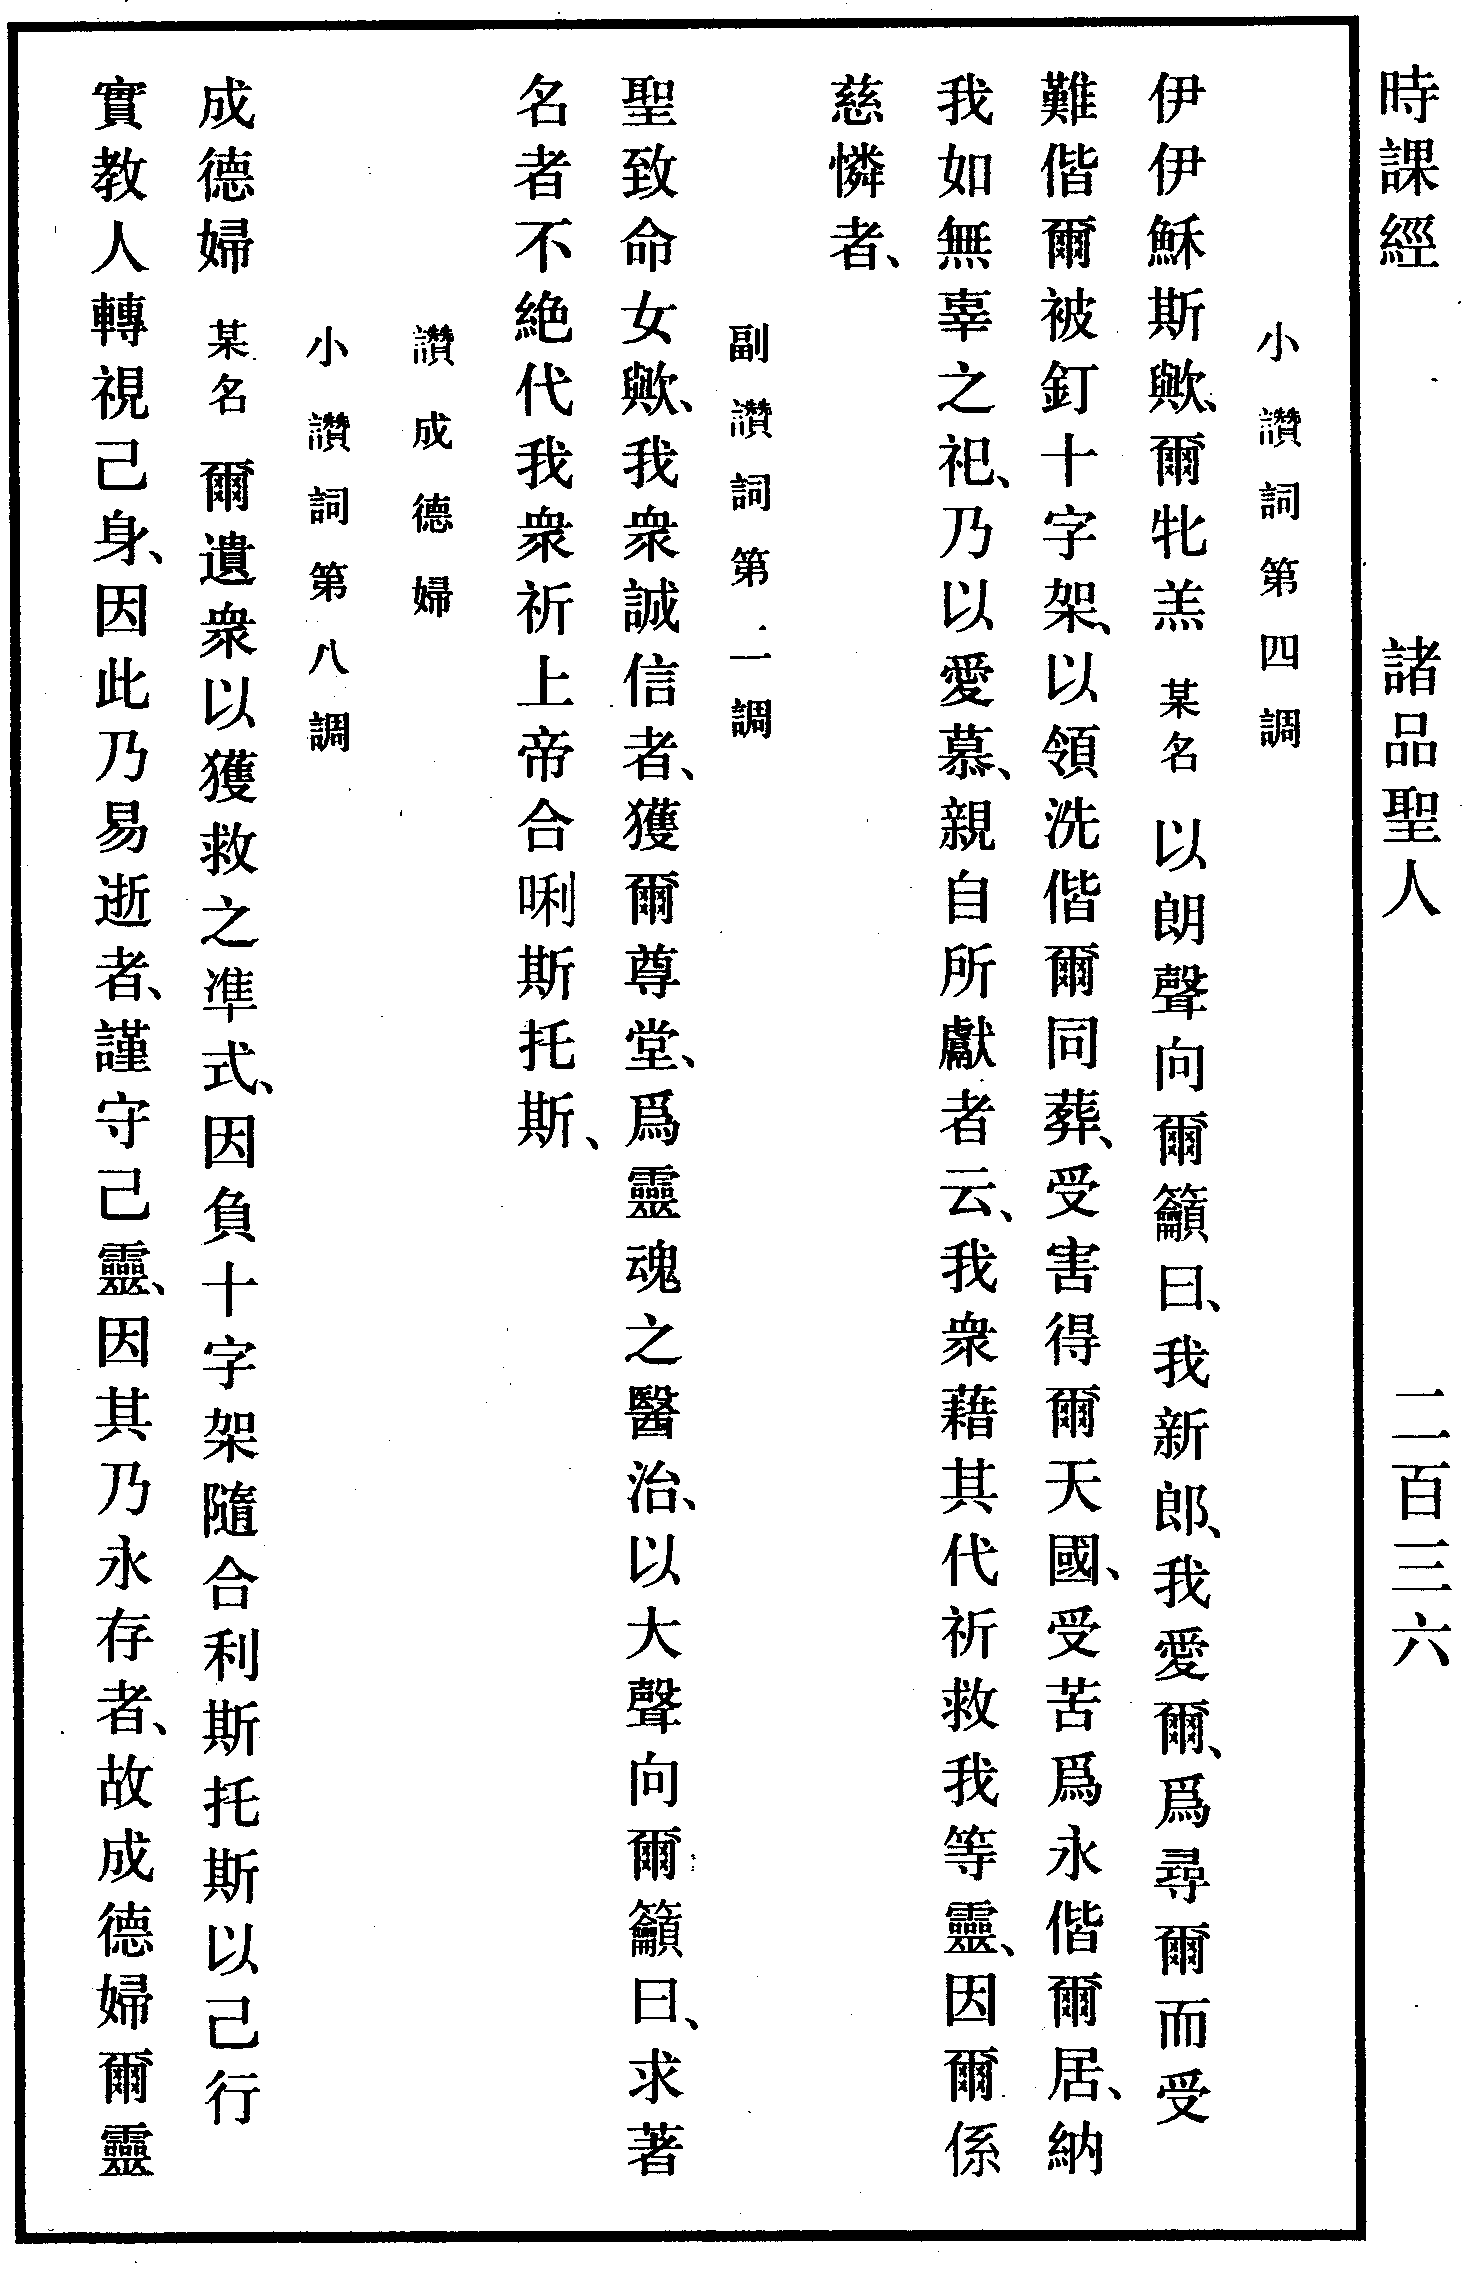 時課經 諸品聖人 二百三六
小讚詞第四調
伊伊穌斯歟、爾牝羔 某名 以朗聲向爾籲曰、我新郎、我愛爾、爲尋爾而受
難偕爾被釘十字架、以領洗偕爾同葬、受害得爾天國、受苦爲永偕爾居、納
我如無辜之祀、乃以愛慕、親自所獻者云、我衆藉其代祈救我等靈、因爾係
慈憐者、
副讚詞第二調
聖致命女歟、我衆誠信者、獲爾尊堂、爲靈魂之醫治、以大聲向爾籲曰、求著
名者不絶代我衆祈上帝合唎斯托斯、
讚成德婦
小讚詞第八調
成德婦 某名 爾遺衆以獲救之準式、因負十字架隨合利斯托斯以己行
實教人轉視己身、因此乃易逝者、謹守己靈、因其乃永存者、故成德婦爾靈